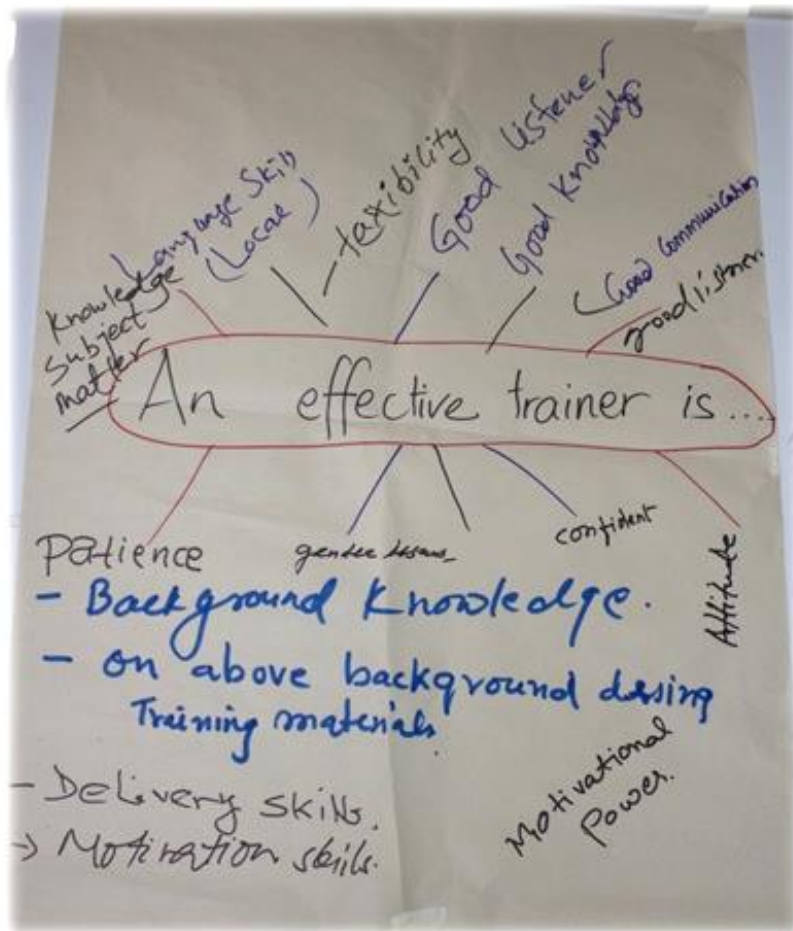 Knowledge
Subject
matter
Language Skill
(Local)
- flexibility
Good Listener
Good Knowledge.
Good Communication
good listner.
An effective trainer is ....
Patience
gender
confident
Attitude
- Background Knowledge.
- on above background desing
Training materials
Motivational
Power.
- Delivery skills.
→ Motivation skills.